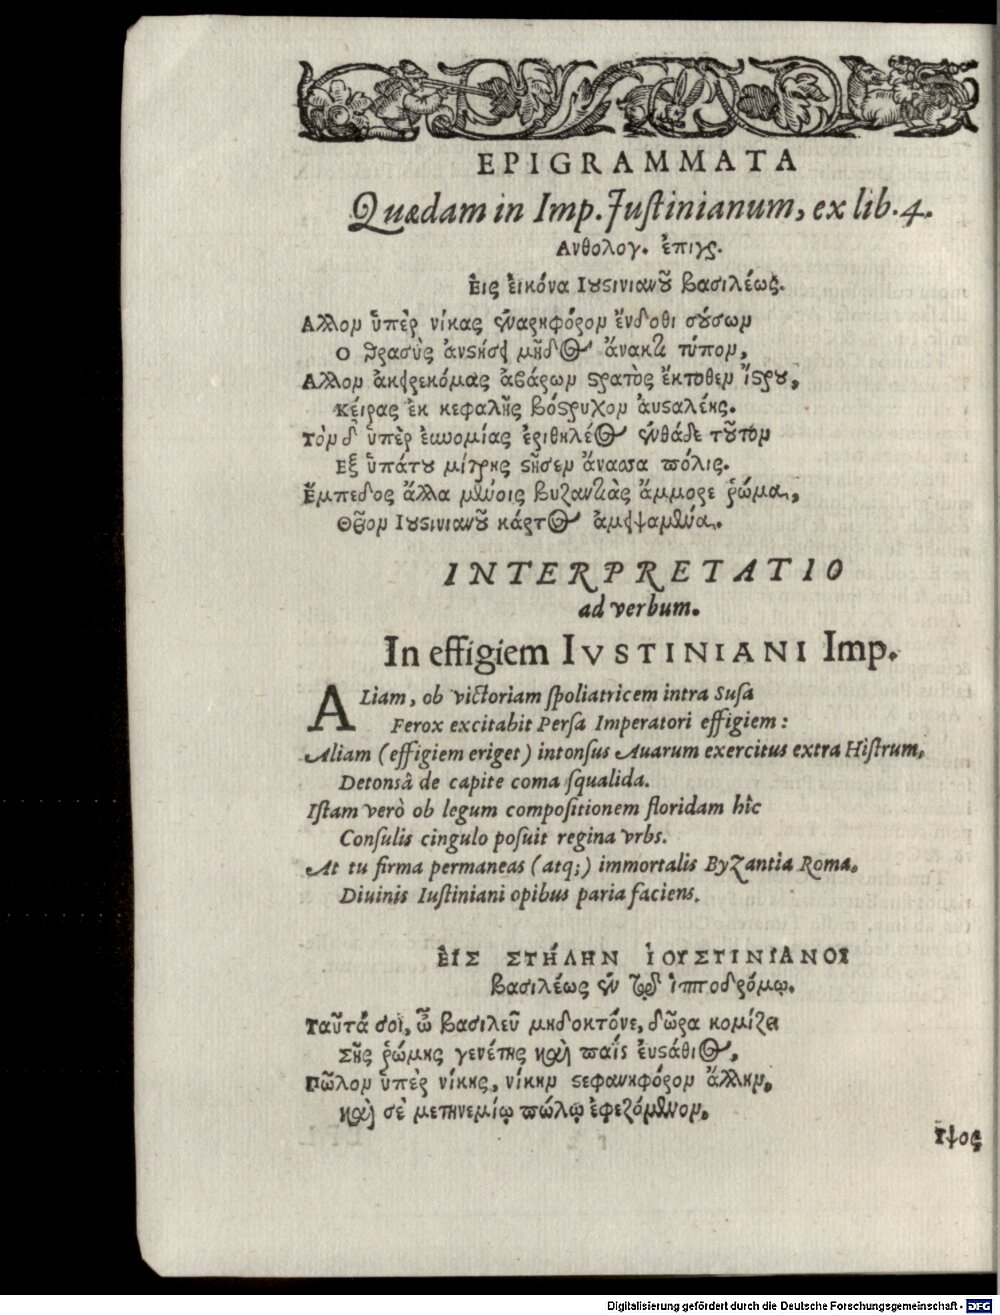 EPIGRAMMATA
Quædam in Imp. Justinianum, ex lib. 4.
Ανθολογ. ἐπιγρ.
Εἰς εἰκόνα Ιουστινιανοῦ βασιλέως.
Αλλον ὑπὲρ νίκας ἐναρηφόρον ἔνδοθι σούσων
Ο θρασὺς ἀνστήσει μῆδος ἄνακτι τύπον,
Αλλον ἀκειρεκόμας ἀβάρων στρατὸς ἔκτοθεν ἴστρου,
Κείρας ἐκ κεφαλῆς βόστρυχον ἀυσαλέης.
Τὸν δ᾽ ὑπὲρ ἐυνομίας ἐριθηλέος ἐνθάδε τοῦτον
Εξ ὑπάτου μίτρης στῆσεν ἄνασσα πόλις.
Ἔμπεδος ἄλλα μένοις βυζαντιὰς ἄμμορε ῥώμα,
Θεῖον Ιουστινιανοῦ κάρτος ἀμειψαμένα.
INTERPRETATIO
ad verbum.
In effigiem IVSTINIANI Imp.
ALiam, ob victoriam spoliatricem intra Susa
Ferox excitabit Persa Imperatori effigiem:
Aliam (effigiem eriget) intonsus Auarum exercitus extra Histrum,
Detonsâ de capite coma squalida.
Istam verò ob legum compositionem floridam hîc
Consulis cingulo posuit regina vrbs.
At tu firma permaneas (atq;) immortalis Byzantia Roma,
Diuinis Iustiniani opibus paria faciens.
ἘΙΣ ΣΤΉΛΗΝ ἸΟΥΣΤΙΝΙΑΝΟΥ
βασιλέως ἐν τῷ ἱπποδρόμῳ.
Ταῦτά σοι, ὦ βασιλεῦ μηδοκτόνε, δῶρα κομίζει
Σῆς ῥώμης γενέτης καὶ παῖς ἐυστάθιος,
Πῶλον ὑπὲρ νίκης, νίκην στεφανηφόρον ἄλλην,
καὶ σὲ μετηνεμίῳ πώλῳ ἐφεζόμενον.
Υψος
Digitalisierung gefördert durch die Deutsche Forschungsgemeinschaft - DFG